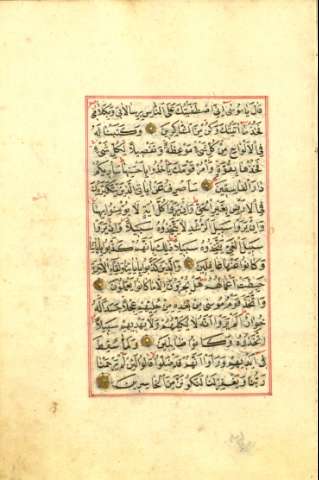 قال يا موسى اني اصطفيتك على الناس برسالاتي وبكلامي
فخذ ما اتيتك وكن من الشاكرين وكتبنا له
في الالواح من كل شيء موعظة وتفصيلا لكل شيء
فخذها بقوة وأمر قومك يأخذوا بأحسنها سأريكم
دار الفاسقين سأصرف عن اياتي الذين يتكبرون
في الارض بغير الحق وان يروا كل اية لا يؤمنوا بها
وان يروا سبيل الرشد لا يتخذوه سبيلا وان يروا
سبيل الغي يتخذوه سبيلا ذلك بأنهم كذبوا باياتنا
وكانوا عنها غافلين والذين كذبوا باياتنا ولقاء الاخرة
حبطت اعمالهم هل يجزون الا ما كانوا يعملون
واتخذ قوم موسى من بعده من حليهم عجلا جسدا له
خوار الم يروا انه لا يكلمهم ولا يهديهم سبيلا
اتخذوه وكانوا ظالمين ولما سقط
في ايديهم ورأوا انهم قد ضلوا قالوا لئن لم يرحمنا
ربنا ويغفر لنا لنكونن من الخاسرين